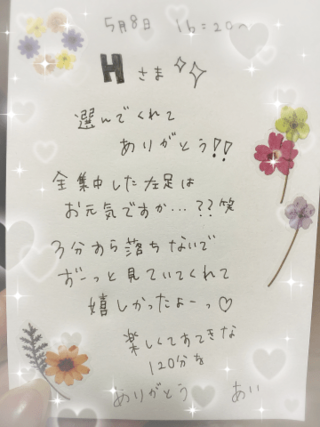 5月8日 16=20〜
Hさま
選んでくれて
ありがとう!!
全集中した左足は
お元気ですか…??笑
3分すら落ちないで
ずーっと見ていてくれて
嬉しかったよーっ♡
楽しくてすてきな
120分を
ありがとう あい